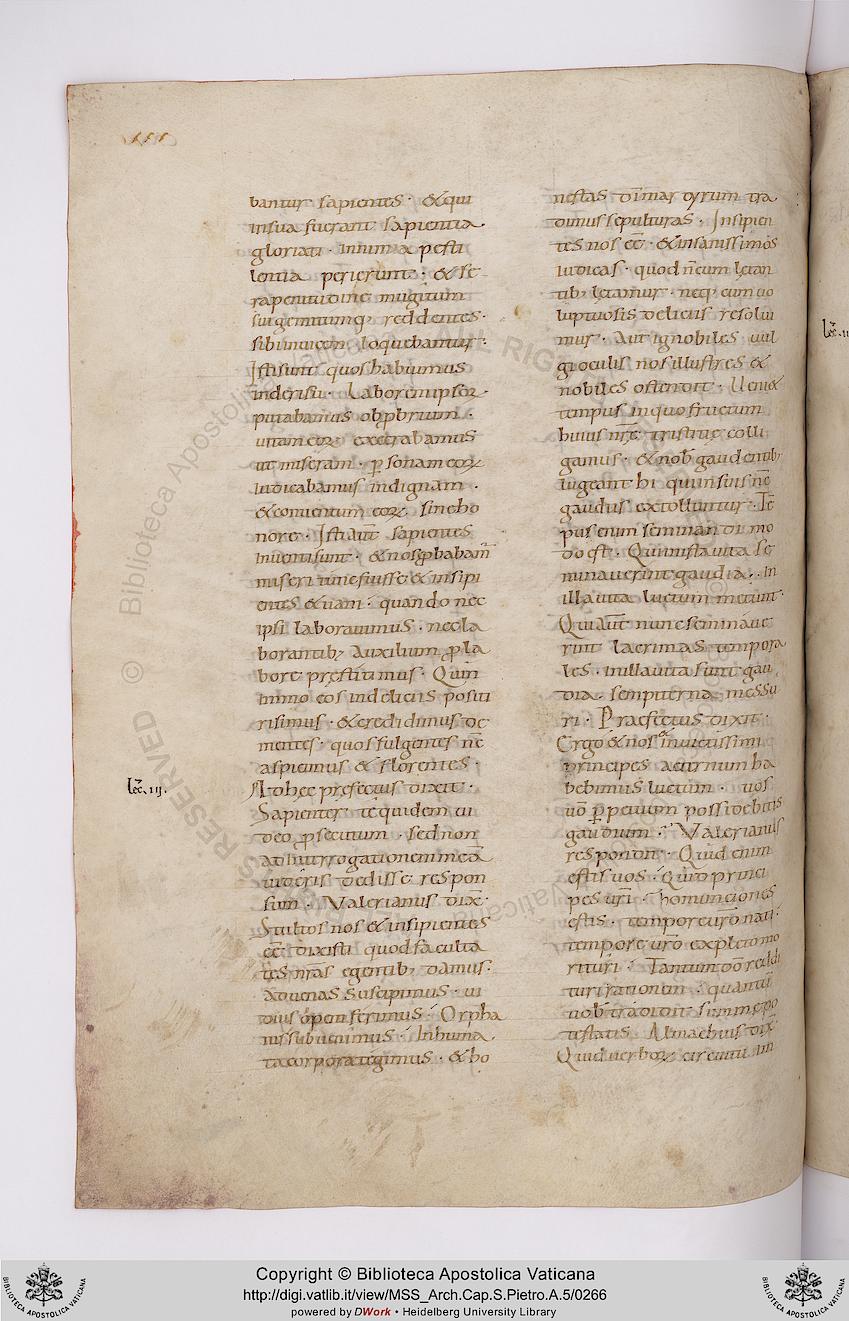 bantur sapientes · & qui
insua fuerant sapientia
gloriati · innimia pesti
lentia perierunt ; & se
rapenitudine mugitum
sui gemitumq; reddentes ·
sibi inuicem loquebantur :
Isti sunt quos habuimus
inderisu · Labore ipsoꝝ
putabamus obpbrium ·
uitam eoꝝ execrabamus
ut miseram · psonam eoꝝ
iudicabamus indignam ·
& conuentum eoꝝ · sine ho
nore · Isti aut̄ sapientes
inuenti sunt · & nos pbabam̄
miseri tunc fuisse & insipi
entes & uani · quando nec
ipsi laborauimus · nec la
borantib; auxilium p la
bore prestitimus · Quin
immo eos indeliciis positi
risimus · & credidimus de
mentes · quos fulgentes nc̄
aspicimus & florentes ·
Lec̄. iij.
Ad hęc prefectus dixit ·
Sapienter te quidem ui
deo psecutum · sed non
ad Interrogationem meā
uideris dedisse respon
sum · Valerianus dix̄ ·
Stultos nos & insipientes
eē dixisti quod faculta
tes nr̄as egentib; damus ·
aduenas suscipimus · ui
duis opem ferimus · Orpha
nis subuenimus · Inhuma
ta corpora tegimus · & ho
nestas di martyrum tra
dimus sepulturas · Insipien
tes nos eē · & insanissimos
iudicas · quod n̄ cum letan
tib; letamur · neq; cum uo
luptuosis deliciis resolui
mur · Aut ignobiles uul
gi oculis nos illustres &
nobiles ostendit · Ueni&
tempus in quo fructum
huius nr̄e tristitię colli
gamus · & nob̄ gaudentib;
lugeant hi qui insuis nc̄
gaudiis extolluntur · Tē
pus enim seminandi mo
do est · Qui in ista uita se
minauerint gaudia · · in
illa uita luctum metunt ·
Qui aut̄ nunc seminaue
rint lacrimas tempora
les · in illa uita sunt gau
dia · sempiterna messu
ri · Praefectus dixit ·
Ergo & nos & inuictissimi
principes aeternum ha
bebimus luctum · uos
uō ppetuum possidebitis
gaudium · Valerianus
respondit · Quid enim
estis uos · Quid princi
pes ur̄i · homunciones
estis · tempore ur̄o nati ·
tempore ur̄o expleto mo
rituri · Tantum dō reddi
turi rationem · quantū
uob̄ tradidit summę po
testatis · Almachius dix̄
Quid uerboꝝ circuitu im
Lec̄. ii
Copyright © Biblioteca Apostolica Vaticana
http://digi.vatlib.it/view/MSS_Arch.Cap.S.Pietro.A.5/0266
powered by DWork • Heidelberg University Library